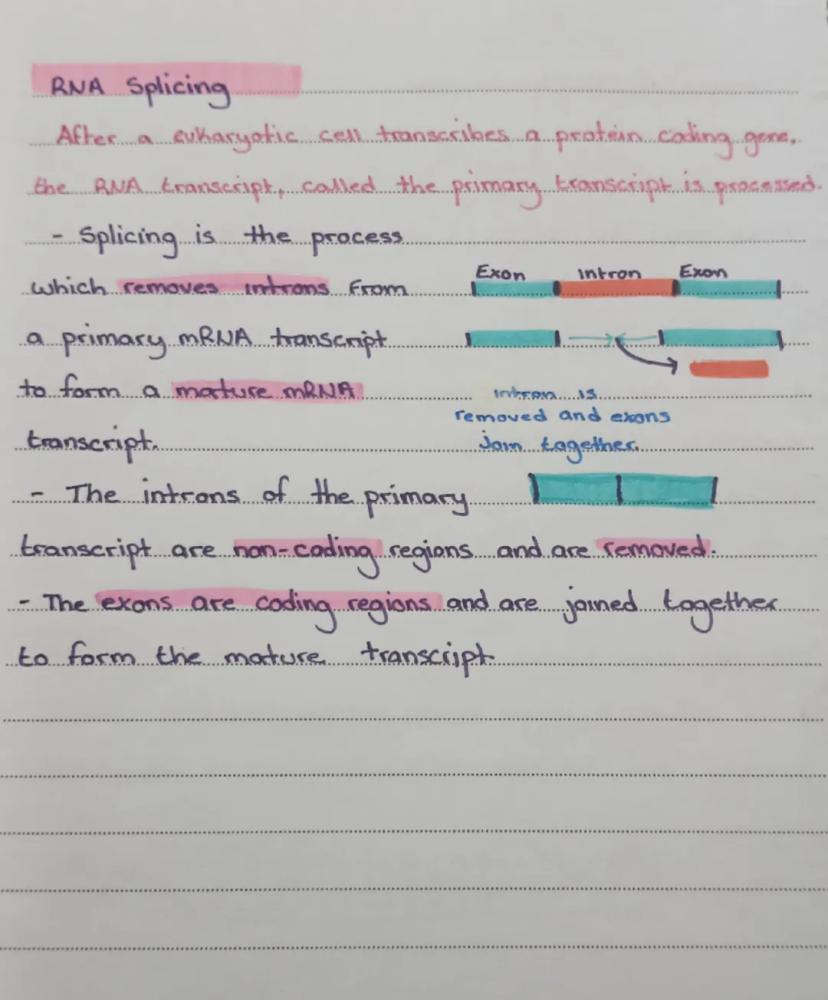 RNA Splicing
After a eukaryotic cell transcribes a protein coding gene,
the RNA transcript, called the primary transcript is processed.
- Splicing is the process
which removes introns from
Exon Intron Exon
a primary mRNA transcript
to form a mature mRNA
transcript.
intron is
removed and exons
join together.
- The introns of the primary
transcript are non-coding regions and are removed.
- The exons are coding regions and are joined together
to form the mature transcript